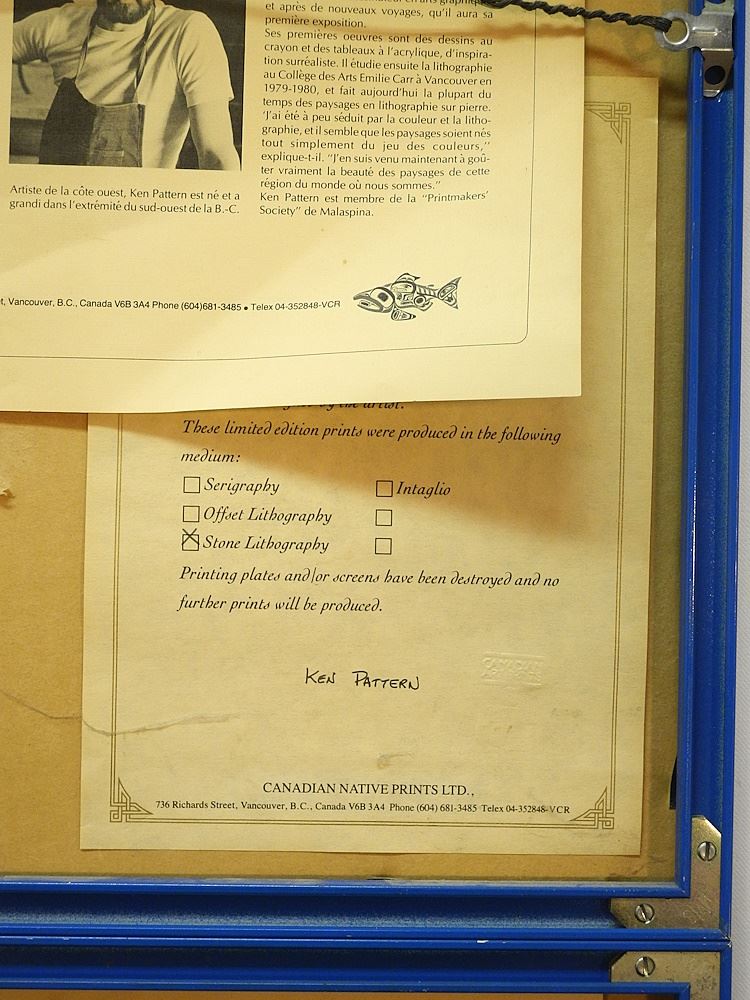 et après de nouveaux voyages, qu'il aura sa
première exposition.
Ses premières oeuvres sont des dessins au
crayon et des tableaux à l'acrylique, d'inspira-
tion surréaliste. Il étudie ensuite la lithographie
au Collège des Arts Emilie Carr à Vancouver en
1979-1980, et fait aujourd'hui la plupart du
temps des paysages en lithographie sur pierre.
'J'ai été à peu séduit par la couleur et la litho-
graphie, et il semble que les paysages soient nés
tout simplement du jeu des couleurs,"
explique-t-il. "J'en suis venu maintenant à goû-
ter vraiment la beauté des paysages de cette
région du monde où nous sommes."
Ken Pattern est membre de la "Printmakers'
Society" de Malaspina.
Artiste de la côte ouest, Ken Pattern est né et a
grandi dans l'extrémité du sud-ouest de la B.-C.
t, Vancouver, B.C., Canada V6B 3A4 Phone (604)681-3485 • Telex 04-352848-VCR
by the artist.
These limited edition prints were produced in the following
medium:
Serigraphy
Intaglio
Offset Lithography
Stone Lithography
Printing plates and/or screens have been destroyed and no
further prints will be produced.
KEN PATTERN
CANADIAN
CANADIAN NATIVE PRINTS LTD.,
736 Richards Street, Vancouver, B.C., Canada V6B 3A4 Phone (604) 681-3485 Telex 04-352848-VCR